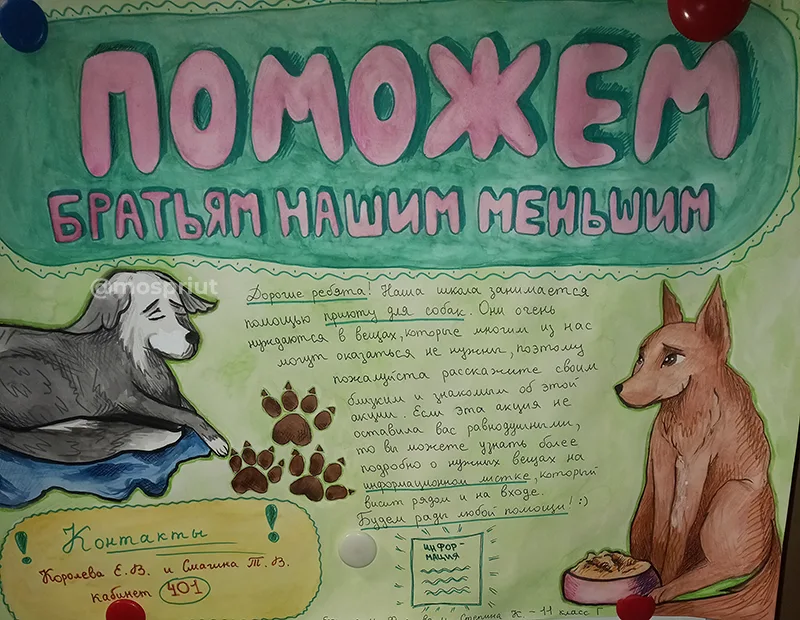 ПОМОЖЕМ
БРАТЬЯМ НАШИМ МЕНЬШИМ
@mospriut
Дорогие ребята! Наша школа занимается
помощью приюту для собак. Они очень
нуждаются в вещах, которые многим из нас
могут оказаться не нужны, поэтому
пожалуйста расскажите своим
близким и знакомым об этой
акции. Если эта акция не
оставила вас равнодушными,
то вы можете узнать более
подробно о нужных вещах на
информационном листке, который
висит рядом и на входе.
Будем рады любой помощи! :)
! Контакты !
Королева Е.В. и Смагина Т.В.
кабинет 401
ИНФОР-
МАЦИЯ
и Степина К. - 11 класс Г